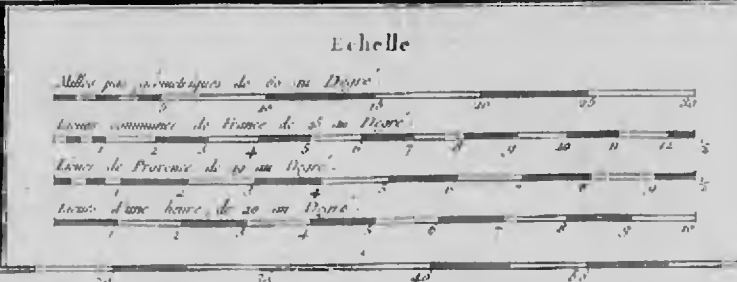 Echelle
Milles pas géométriques de 60 au Degré.
5 10 15 20 25 30
Lieues communes de France de 25 au Degré.
1 2 3 4 5 6 7 8 9 10 11 12 ½
Lieues de Provence de 19 au Degré.
1 2 3 4 5 6 7 8 9 ½
Lieues d'une heure de 20 au Degré.
1 2 3 4 5 6 7 8 9 10
40